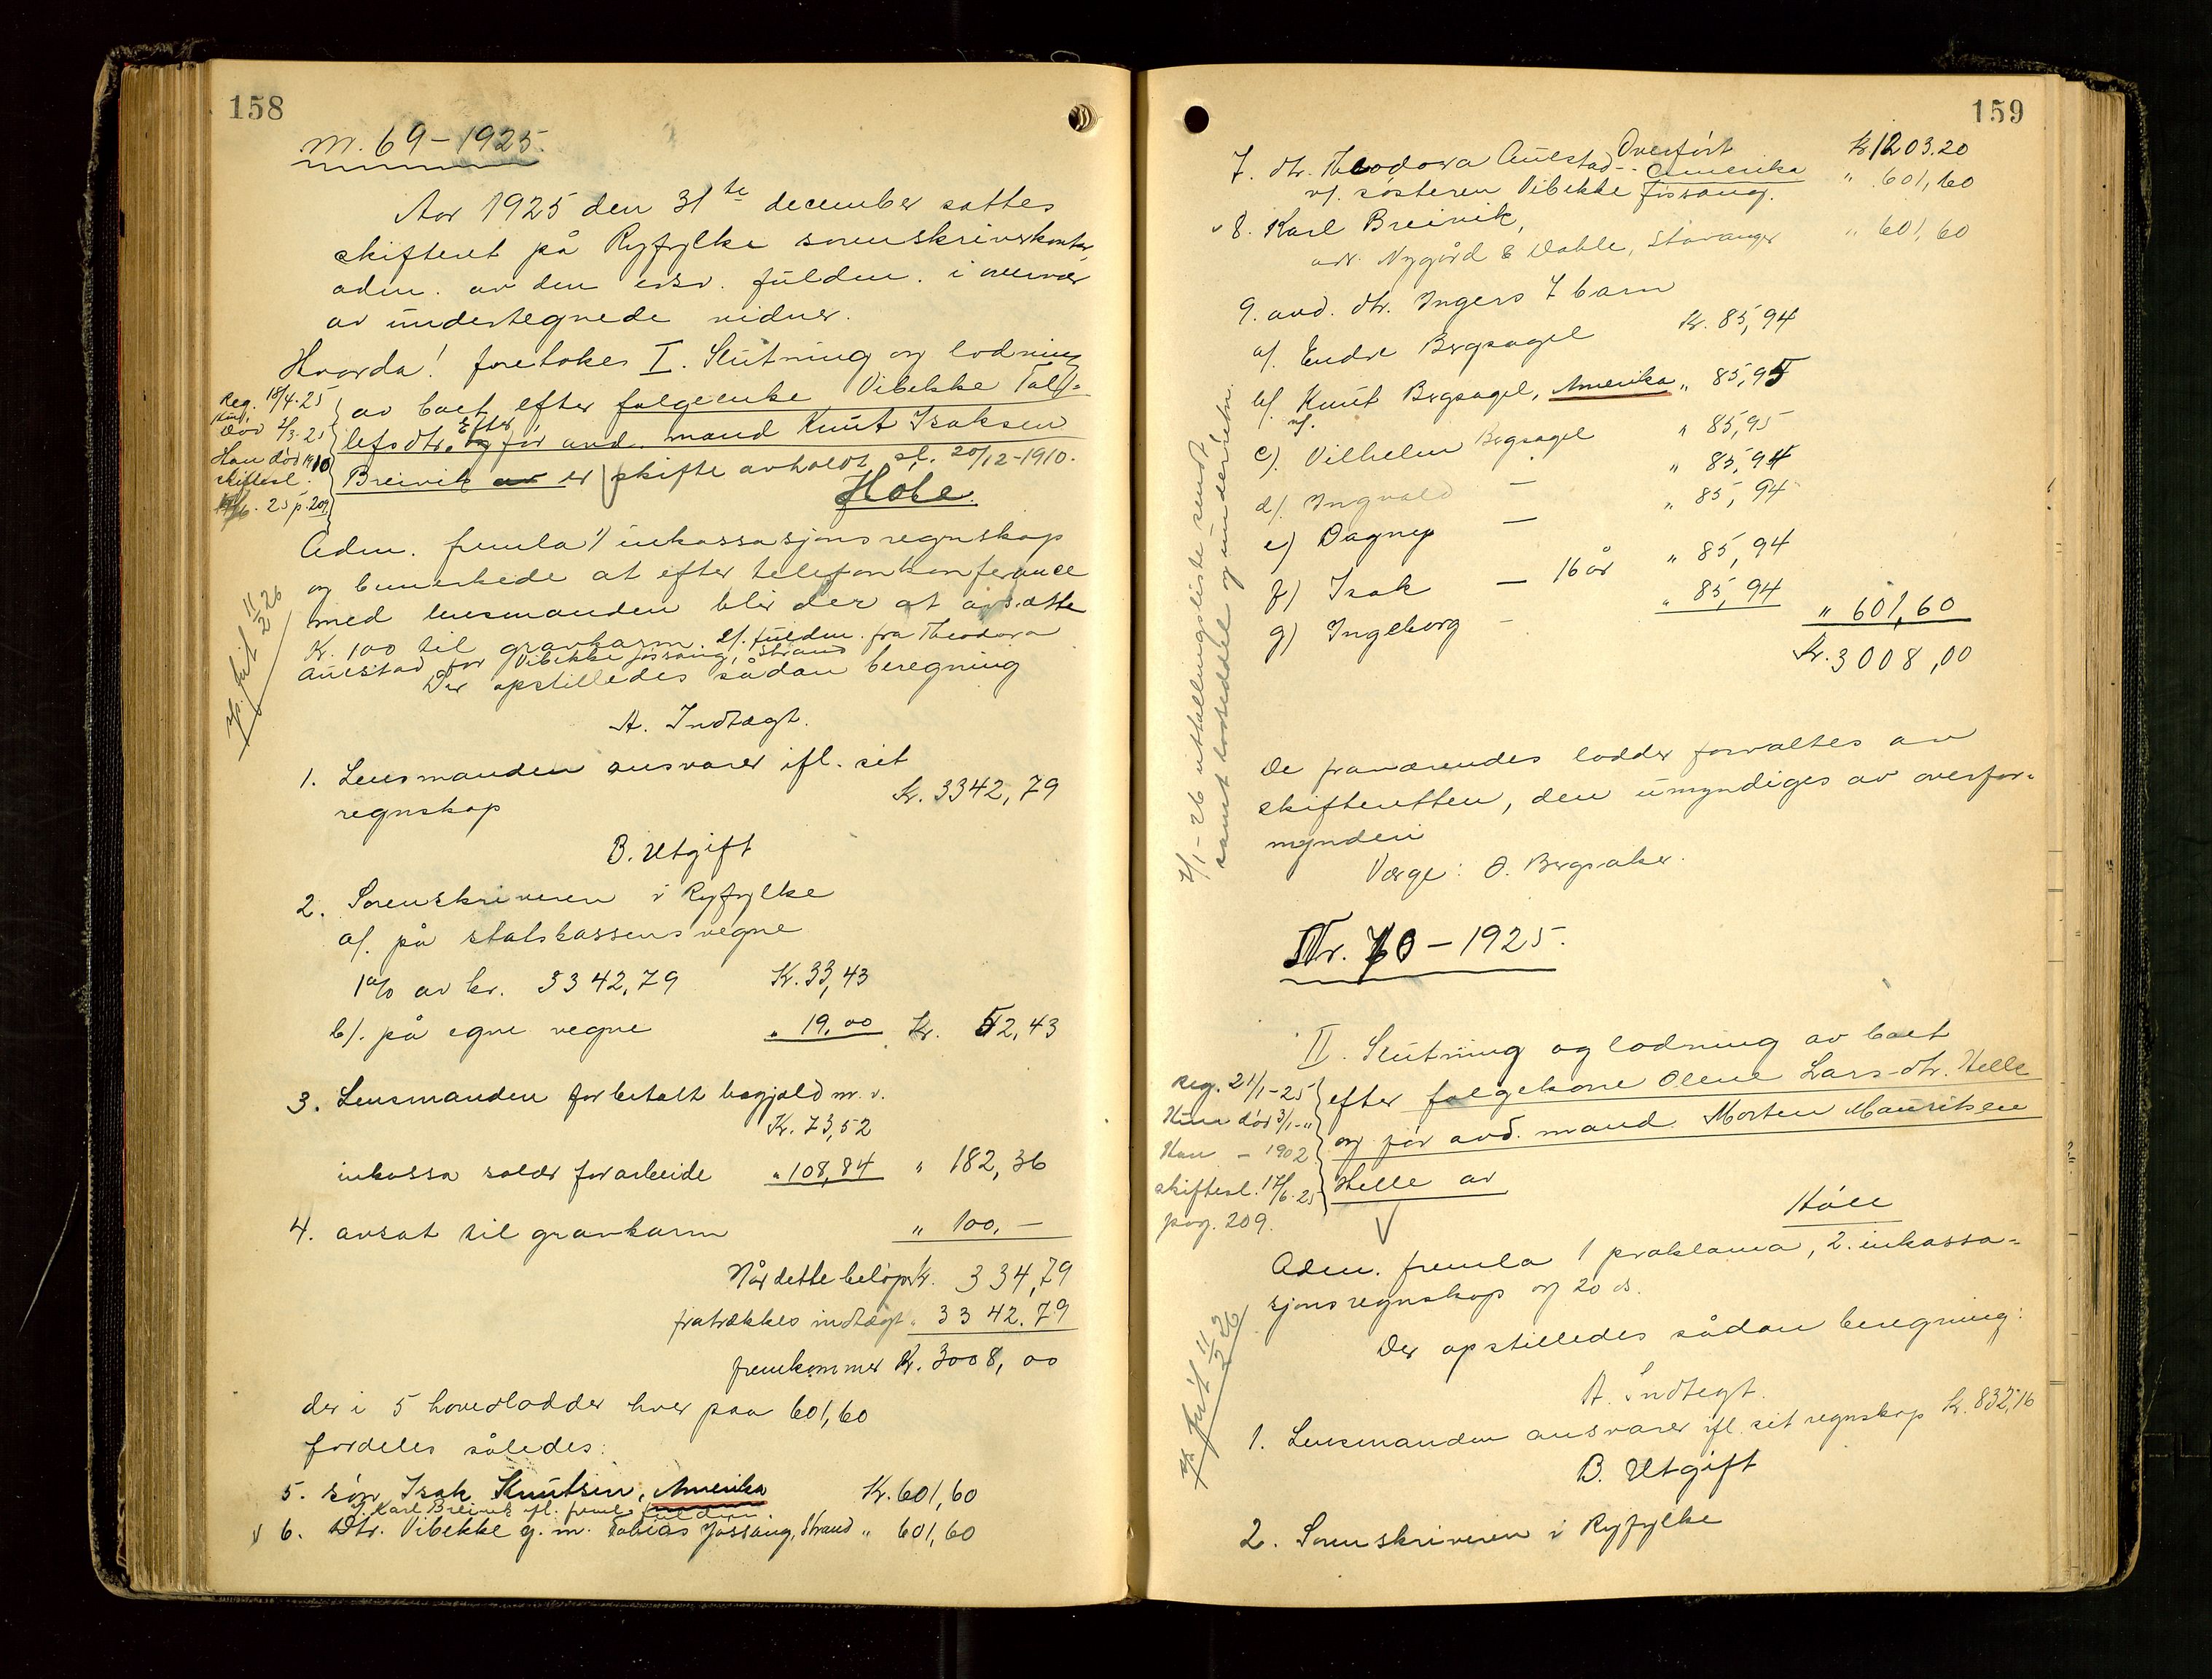 158
Nr. 69 - 1925.
Aar 1925 den 31te december sattes
skifteret på Ryfylke sorenskriverkontor,
adm. av den edsv. fuldm. i overvær
av undertegnede vidner.
Hvorda! foretokes I. Slutning og lodning
av boet efter følgeenke Vibekke Tol-
lefsdtr. Efter før avd. mand Knut Isaksen
Breivik er skifte avholdt sl. 20/12-1910.
Hole
Reg. 18/4-25
Hun død 2/3-25
Han død 1910
skiftesl.
25 p. 209
Adm. fremla 1/ inkassasjonsregnskap
og bemerkede at efter telefonkonferance
med lensmanden blir der at avsætte
Kr. 100 til gravkarm. 2/. fuldm. fra Theodora
Auestad for Vibekke Jøssang, Strand
Der opstilledes sådan beregning
A. Indtægt.
1. Lensmanden ansvarer ifl. sit
regnskap Kr. 3342,79
B. Utgift
2. Sorenskriveren i Ryfylke
a/. på statskassens vegne
1% av kr. 3342,79 Kr. 33,43
b/. på egne vegne " 19,00 Kr. 52,43
3. Lensmanden for betalt bogjæld m. v.
Kr. 73,52
inkassa salær for arbeide " 108,84 " 182,36
4. avsat til gravkarm " 100,-
Når dette beløp Kr. 334,79
fratrækkes indtægt " 3342.79
fremkommer Kr. 3008,00
der i 5 hovedlodder hver paa 601,60
fordeles således:
5. søn Isak Knutsen, Amerika Kr. 601,60
Karl Breivik ifl. freml. fuldm.
6. Dtr. Vibekke g. m. Tobias Jøssang, Strand " 601,60
159
Overført Kr 1203.20
7. dtr. Theodora Auestad - Amerika " 601,60
v/. søsteren Vibekke Jøssang.
8. Karl Breivik, " 601,60
adr. Nygård & Dahle, Stavanger
9. avd. dtr. Ingers 7 barn
a/. Endre Bergsagel Kr. 85,94
b/. Knut Bergsagel, Amerika " 85,95
v/.
c). Vilhelm Bergsagel " 85,95
d/. Ingvald - " 85,94
e) Dagny - " 85,94
f) Isak - 16 år " 85,94
g) Ingeborg - " 85,94 " 601,60
Kr. 3008,00
7/1-26 uttællingsliste sendt
samt lodseddel og underretn.
De fraværendes lodder forvaltes av
skifteretten, den umyndiges av overfor-
mynderi
Værge: O. Bergsaker.
Nr. 70 - 1925.
II. Slutning og lodning av boet
efter følgekone Olene Lars-dtr. Helle
og før avd. mand Morten Mauritsen
Helle av
Høle
Reg. 21/1-25
Hun død 3/1-"
Han - 1902
skiftesl. 17/6-25
pag. 209.
Adm. fremla 1 proklama, 2. inkassa-
sjonsregnskap og 20 ds.
Der opstilledes sådan beregning:
A. Indtegt.
1. Lensmanden ansvarer ifl. sit regnskap Kr. 832,16
B. Utgift
2. Sorenskriveren i Ryfylke